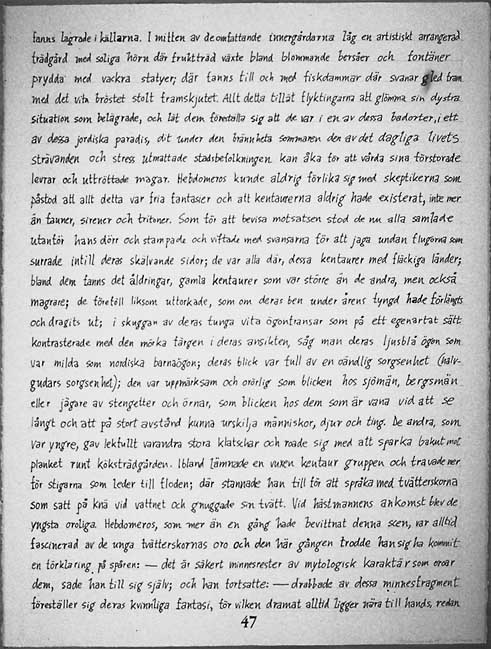 fanns lagrade i källarna. I mitten av de omfattande innergårdarna låg en artistiskt arrangerad
trädgård med soliga hörn där fruktträd växte bland blommande bersåer och fontäner
prydda med vackra statyer; där fanns till och med fiskdammar där svanar gled fram
med det vita bröstet stolt framskjutet. Allt detta tillät flyktingarna att glömma sin dystra
situation som belägrade, och lät dem föreställa sig att de var i en av dessa badorter, i ett
av dessa jordiska paradis, dit under den brännheta sommaren den av det dagliga livets
strävanden och stress utmattade stadsbefolkningen kan åka för att vårda sina förstorade
levrar och uttröttade magar. Hebdomeros kunde aldrig förlika sig med skeptikerna som
påstod att allt detta var fria fantasier och att kentaurerna aldrig hade existerat, inte mer
än fauner, sirener och tritoner. Som för att bevisa motsatsen stod de nu alla samlade
utanför hans dörr och stampade och viftade med svansarna för att jaga undan flugorna som
surrade intill deras skälvande sidor; de var alla där, dessa kentaurer med fläckiga länder;
bland dem fanns det åldringar, gamla kentaurer som var större än de andra, men också
magrare; de föreföll liksom uttorkade, som om deras ben under årens tyngd hade förlängts
och dragits ut; i skuggan av deras tunga vita ögonfransar som på ett egenartat sätt
kontrasterade med den mörka färgen i deras ansikten, såg man deras ljusblå ögon som
var milda som nordiska barnaögon; deras blick var full av en oändlig sorgsenhet (halv-
gudars sorgsenhet); den var uppmärksam och orörlig som blicken hos sjömän, bergsmän
eller jägare av stengetter och örnar, som blicken hos dem som är vana vid att se
långt och att på stort avstånd kunna urskilja människor, djur och ting. De andra, som
var yngre, gav lekfullt varandra stora klatschar och roade sig med att sparka bakut mot
planket runt köksträdgården. Ibland lämnade en vuxen kentaur gruppen och travade ner
för stigarna som leder till floden; där stannade han till för att språka med tvätterskorna
som satt på knä vid vattnet och gnuggade sin tvätt. Vid hästmannens ankomst blev de
yngsta oroliga. Hebdomeros, som mer än en gång hade bevittnat denna scen, var alltid
fascinerad av de unga tvätterskornas oro och den här gången trodde han sig ha kommit
en förklaring på spåren: — det är säkert minnesrester av mytologisk karaktär som oroar
dem, sade han till sig själv; och han fortsatte: — drabbade av dessa minnesfragment
föreställer sig deras kvinnliga fantasi, för vilken dramat alltid ligger nära till hands, redan
47